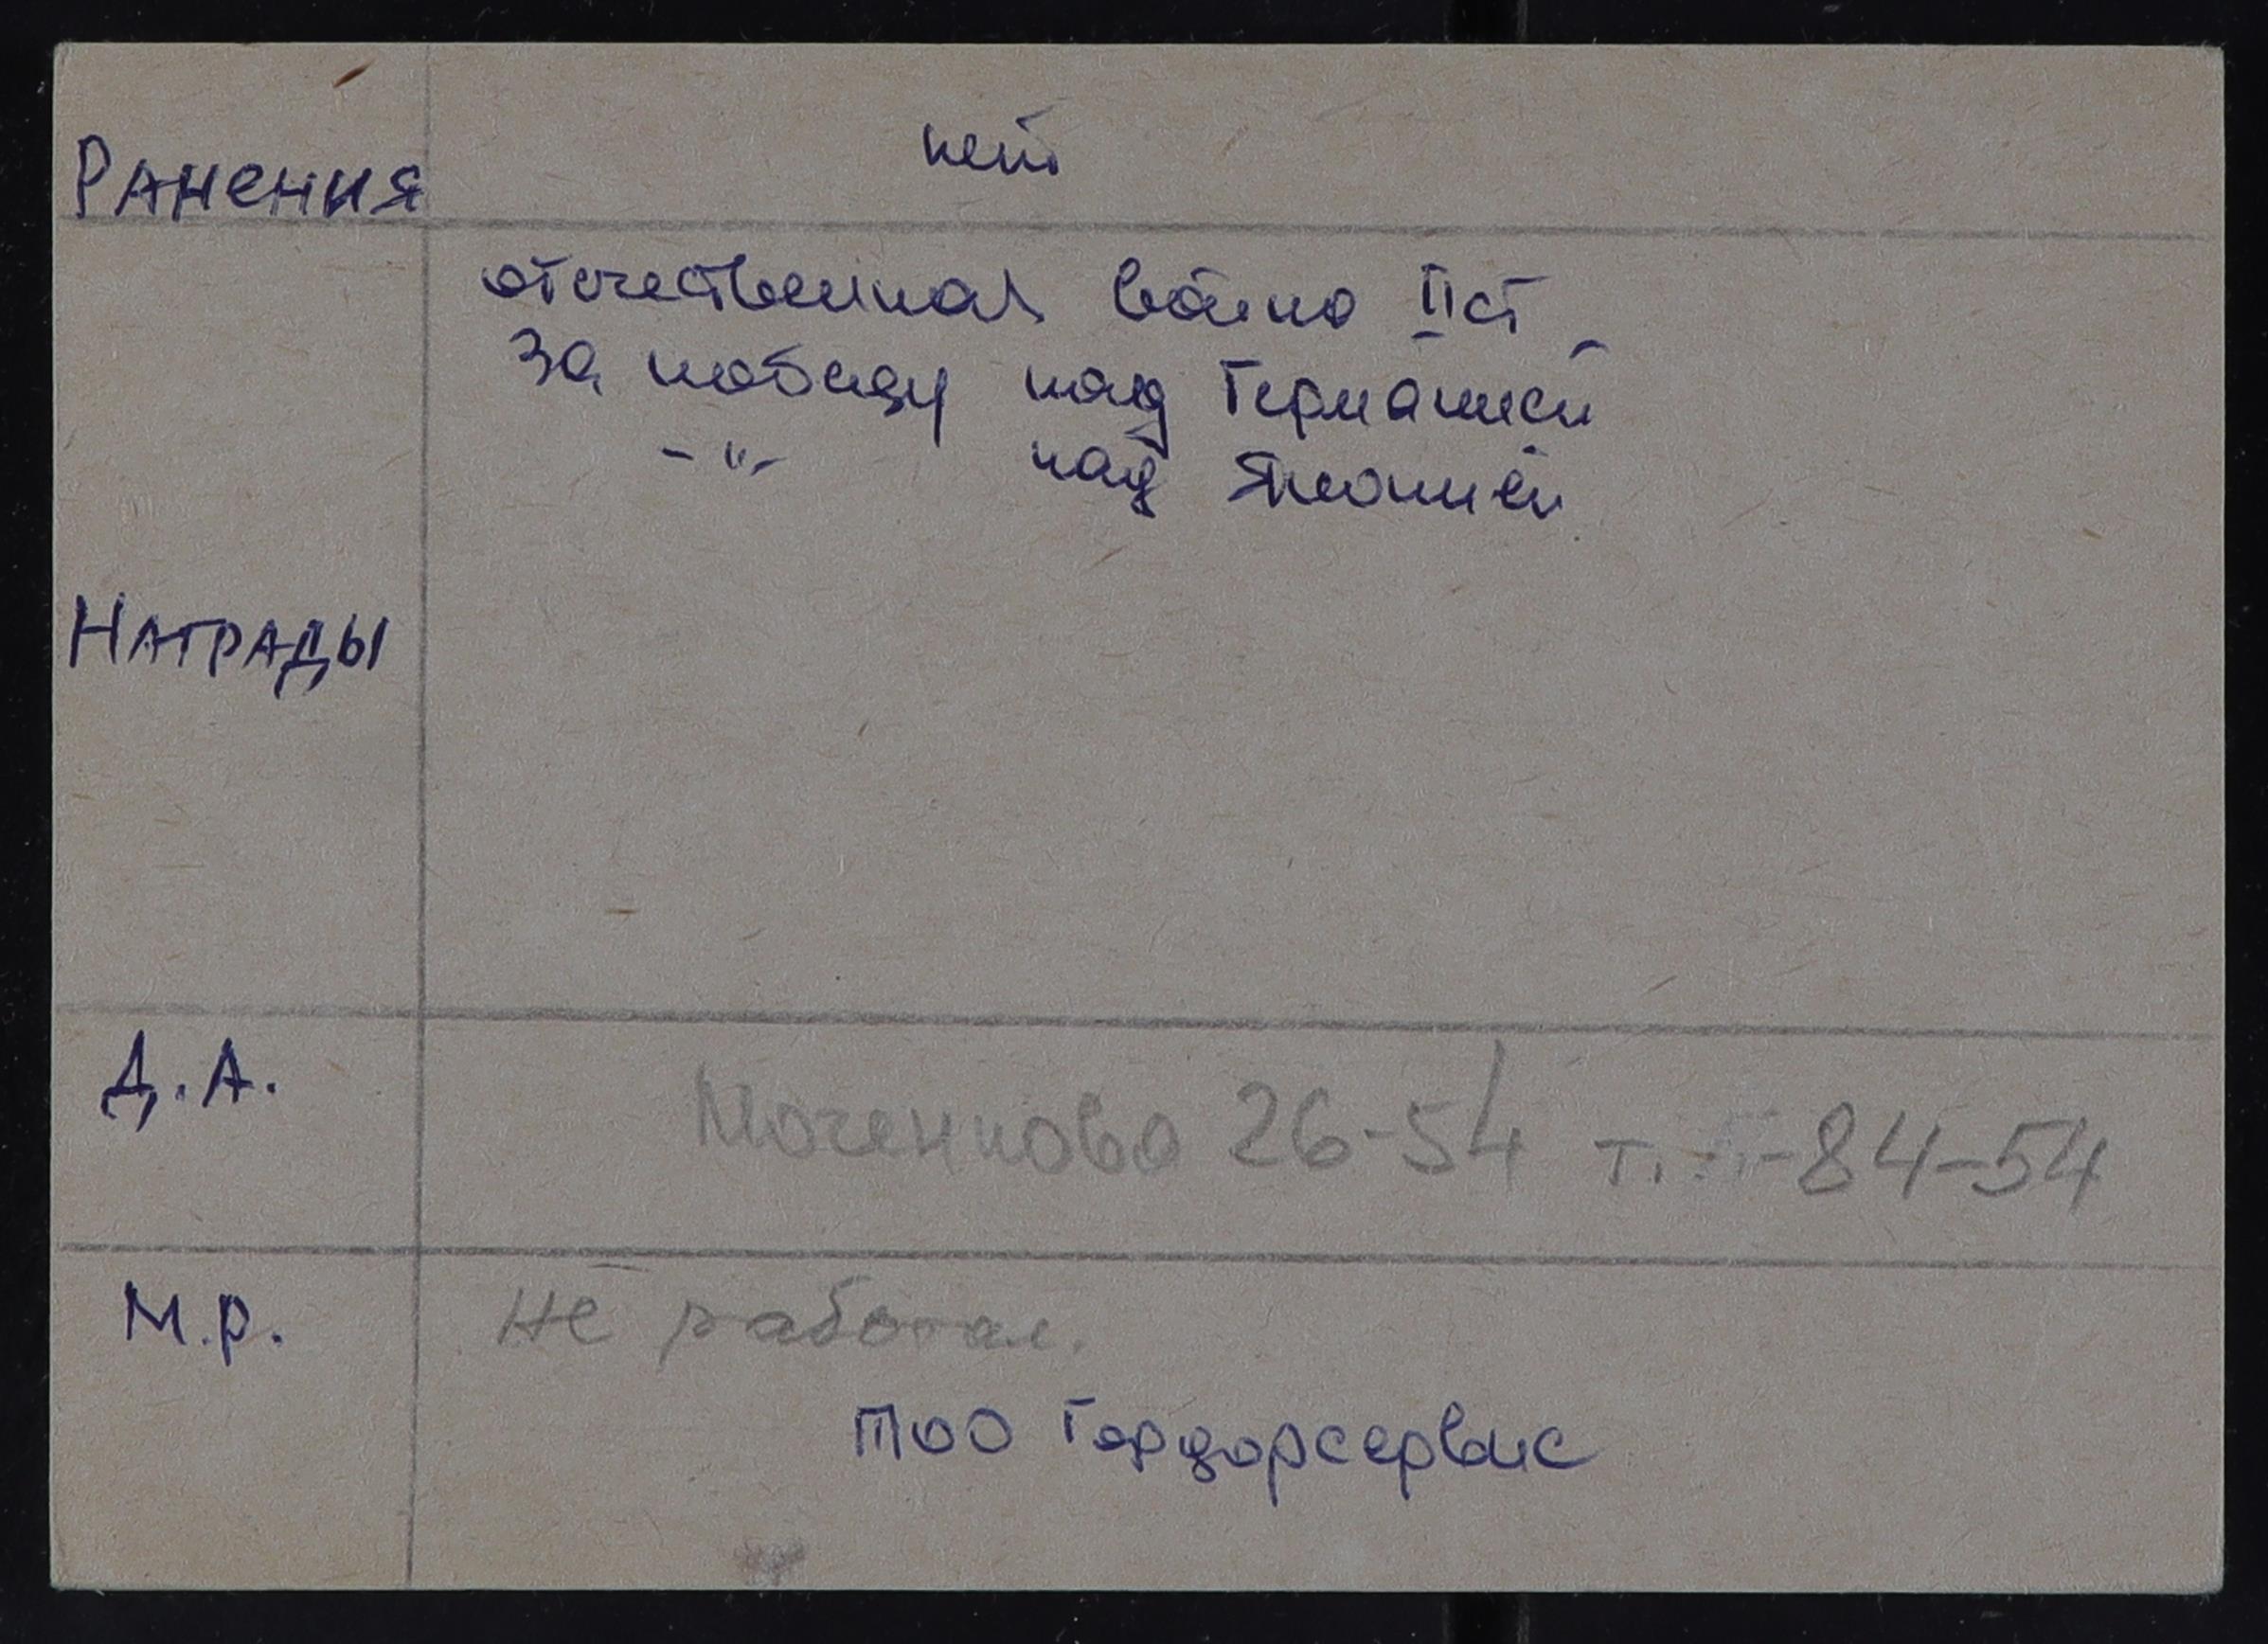 Ранения нет
отечественная война II ст
За победу над Германией
-"- над Японией
Награды
Д.А. Моченкова 26-54 т. 84-54
М.р. не работал.
ТОО Гордорсервис